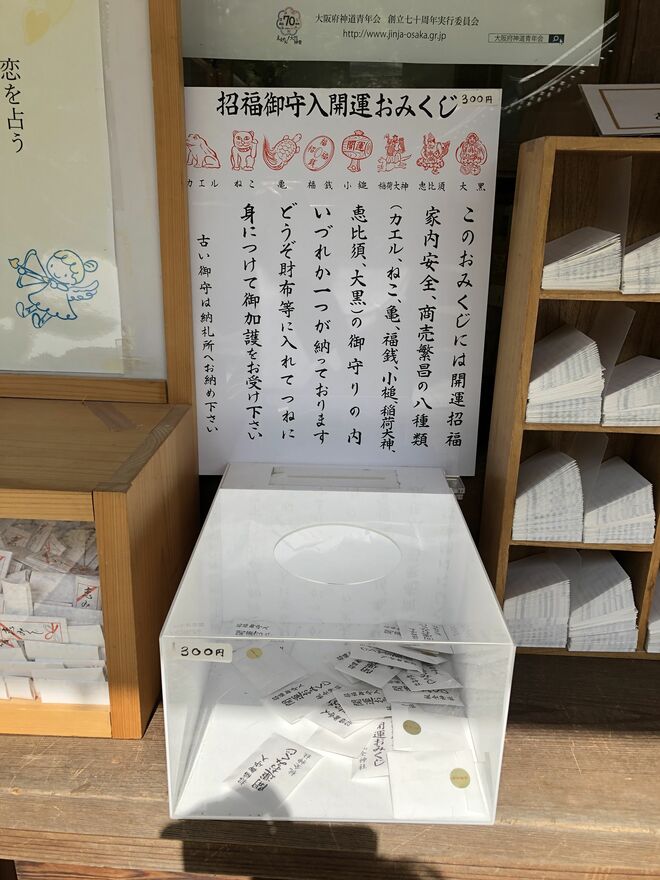 大阪府神道青年会 創立七十周年実行委員会
http://www.jinja-osaka.gr.jp
大阪府神道青年会
70
恋を占う
招福御守入開運おみくじ 300円
開運
カエル ねこ 亀 福銭 小槌 稲荷大神 恵比須 大黒
このおみくじには開運招福
家内安全、商売繁昌の八種類
(カエル、ねこ、亀、福銭、小槌、稲荷大神、
恵比須、大黒)の御守りの内
いづれか一つが納っております
どうぞ財布等に入れてつねに
身につけて御加護をお受け下さい
古い御守は納札所へお納め下さい
300円
開運おみくじ